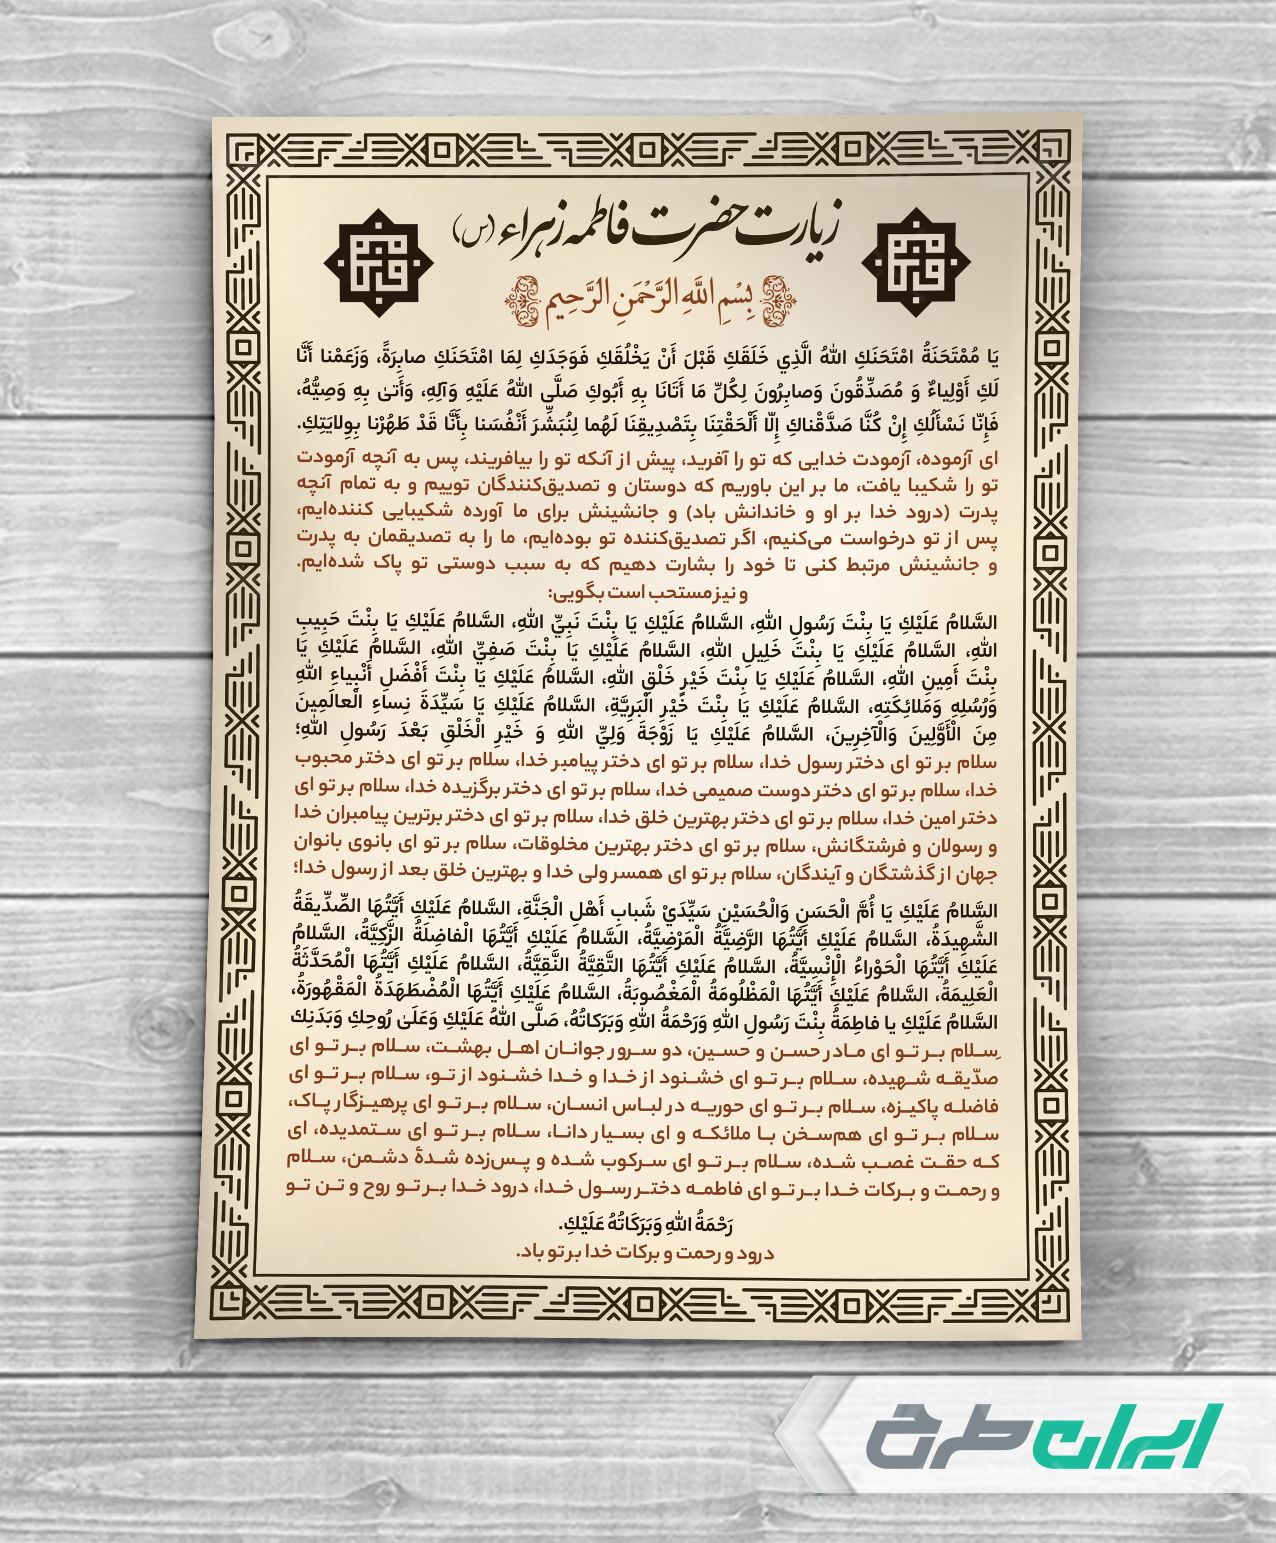 زیارت حضرت فاطمه زهراء (س)
بِسْمِ اللَّهِ الرَّحْمَنِ الرَّحِيمِ
يَا مُمْتَحَنَةُ امْتَحَنَكِ اللهُ الَّذِي خَلَقَكِ قَبْلَ أَنْ يَخْلُقَكِ فَوَجَدَكِ لِمَا امْتَحَنَكِ صابِرَةً، وَزَعَمْنا أَنَّا
لَكِ أَوْلِياءٌ وَ مُصَدِّقُونَ وَصابِرُونَ لِكُلِّ مَا أَتَانَا بِهِ أَبُوكِ صَلَّى اللهُ عَلَيْهِ وَآلِهِ، وَأَتىٰ بِهِ وَصِيُّهُ،
فَإِنَّا نَسْأَلُكِ إِنْ كُنَّا صَدَّقْناكِ إِلّا أَلْحَقْتِنَا بِتَصْدِيقِنَا لَهُما لِنُبَشِّرَ أَنْفُسَنا بِأَنَّا قَدْ طَهُرْنا بِوِلايَتِكِ.
ای آزموده، آزمودت خدایی که تو را آفرید، پیش از آنکه تو را بیافریند، پس به آنچه آزمودت
تو را شکیبا یافت، ما بر این باوریم که دوستان و تصدیق‌کنندگان توییم و به تمام آنچه
پدرت (درود خدا بر او و خاندانش باد) و جانشینش برای ما آورده شکیبایی کننده‌ایم،
پس از تو درخواست می‌کنیم، اگر تصدیق‌کننده تو بوده‌ایم، ما را به تصدیقمان به پدرت
و جانشینش مرتبط کنی تا خود را بشارت دهیم که به سبب دوستی تو پاک شده‌ایم.
و نیز مستحب است بگویی:
السَّلامُ عَلَيْكِ يَا بِنْتَ رَسُولِ اللهِ، السَّلامُ عَلَيْكِ يَا بِنْتَ نَبِيِّ اللهِ، السَّلامُ عَلَيْكِ يَا بِنْتَ حَبِيبِ
اللهِ، السَّلامُ عَلَيْكِ يَا بِنْتَ خَلِيلِ اللهِ، السَّلامُ عَلَيْكِ يَا بِنْتَ صَفِيِّ اللهِ، السَّلامُ عَلَيْكِ يَا
بِنْتَ أَمِينِ اللهِ، السَّلامُ عَلَيْكِ يَا بِنْتَ خَيْرِ خَلْقِ اللهِ، السَّلامُ عَلَيْكِ يَا بِنْتَ أَفْضَلِ أَنْبِياءِ اللهِ
وَرُسُلِهِ وَمَلائِكَتِهِ، السَّلامُ عَلَيْكِ يَا بِنْتَ خَيْرِ الْبَرِيَّةِ، السَّلامُ عَلَيْكِ يَا سَيِّدَةَ نِساءِ الْعالَمِينَ
مِنَ الْأَوَّلِينَ وَالْآخِرِينَ، السَّلامُ عَلَيْكِ يَا زَوْجَةَ وَلِيِّ اللهِ وَ خَيْرِ الْخَلْقِ بَعْدَ رَسُولِ اللهِ؛
سلام بر تو ای دختر رسول خدا، سلام بر تو ای دختر پیامبر خدا، سلام بر تو ای دختر محبوب
خدا، سلام بر تو ای دختر دوست صمیمی خدا، سلام بر تو ای دختر برگزیده خدا، سلام بر تو ای
دختر امین خدا، سلام بر تو ای دختر بهترین خلق خدا، سلام بر تو ای دختر برترین پیامبران خدا
و رسولان و فرشتگانش، سلام بر تو ای دختر بهترین مخلوقات، سلام بر تو ای بانوی بانوان
جهان از گذشتگان و آیندگان، سلام بر تو ای همسر ولی خدا و بهترین خلق بعد از رسول خدا؛
السَّلامُ عَلَيْكِ يَا أُمَّ الْحَسَنِ وَالْحُسَيْنِ سَيِّدَيْ شَبابِ أَهْلِ الْجَنَّةِ، السَّلامُ عَلَيْكِ أَيَّتُهَا الصِّدِّيقَةُ
الشَّهِيدَةُ، السَّلامُ عَلَيْكِ أَيَّتُهَا الرَّضِيَّةُ الْمَرْضِيَّةُ، السَّلامُ عَلَيْكِ أَيَّتُهَا الْفاضِلَةُ الزَّكِيَّةُ، السَّلامُ
عَلَيْكِ أَيَّتُهَا الْحَوْراءُ الْإِنْسِيَّةُ، السَّلامُ عَلَيْكِ أَيَّتُهَا التَّقِيَّةُ النَّقِيَّةُ، السَّلامُ عَلَيْكِ أَيَّتُهَا الْمُحَدَّثَةُ
الْعَلِيمَةُ، السَّلامُ عَلَيْكِ أَيَّتُهَا الْمَظْلُومَةُ الْمَغْصُوبَةُ، السَّلامُ عَلَيْكِ أَيَّتُهَا الْمُضْطَهَدَةُ الْمَقْهُورَةُ،
السَّلامُ عَلَيْكِ يا فاطِمَةُ بِنْتَ رَسُولِ اللهِ وَرَحْمَةُ اللهِ وَبَرَكاتُهُ، صَلَّى اللهُ عَلَيْكِ وَعَلَىٰ رُوحِكِ وَبَدَنِكِ
سلام بر تو ای مادر حسن و حسین، دو سرور جوانان اهل بهشت، سلام بر تو ای
صدّیقه شهیده، سلام بر تو ای خشنود از خدا و خدا خشنود از تو، سلام بر تو ای
فاضله پاکیزه، سلام بر تو ای حوریه در لباس انسان، سلام بر تو ای پرهیزگار پاک،
سلام بر تو ای هم‌سخن با ملائکه و ای بسیار دانا، سلام بر تو ای ستمدیده، ای
که حقت غصب شده، سلام بر تو ای سرکوب شده و پس‌زده شدهٔ دشمن، سلام
و رحمت و برکات خدا بر تو ای فاطمه دختر رسول خدا، درود خدا بر تو روح و تن تو
رَحْمَةُ اللهِ وَبَرَكَاتُهُ عَلَيْكِ.
درود و رحمت و برکات خدا بر تو باد.
ایران طرح